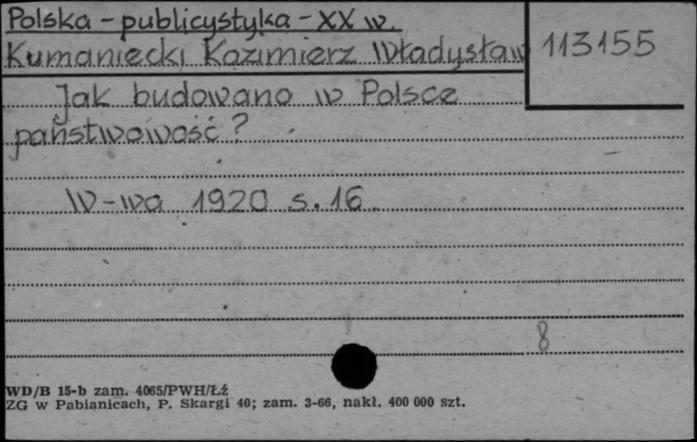 Polska - publicystyka - XX w.
Kumaniecki Kazimierz Władysław
113155
Jak budowano w Polsce
państwowość?
W-wa 1920 s. 16.
8
WD/B 15-b zam. 4065/PWH/Łź
ZG w Pabianicach, P. Skargi 40; zam. 3-66, nakł. 400 000 szt.